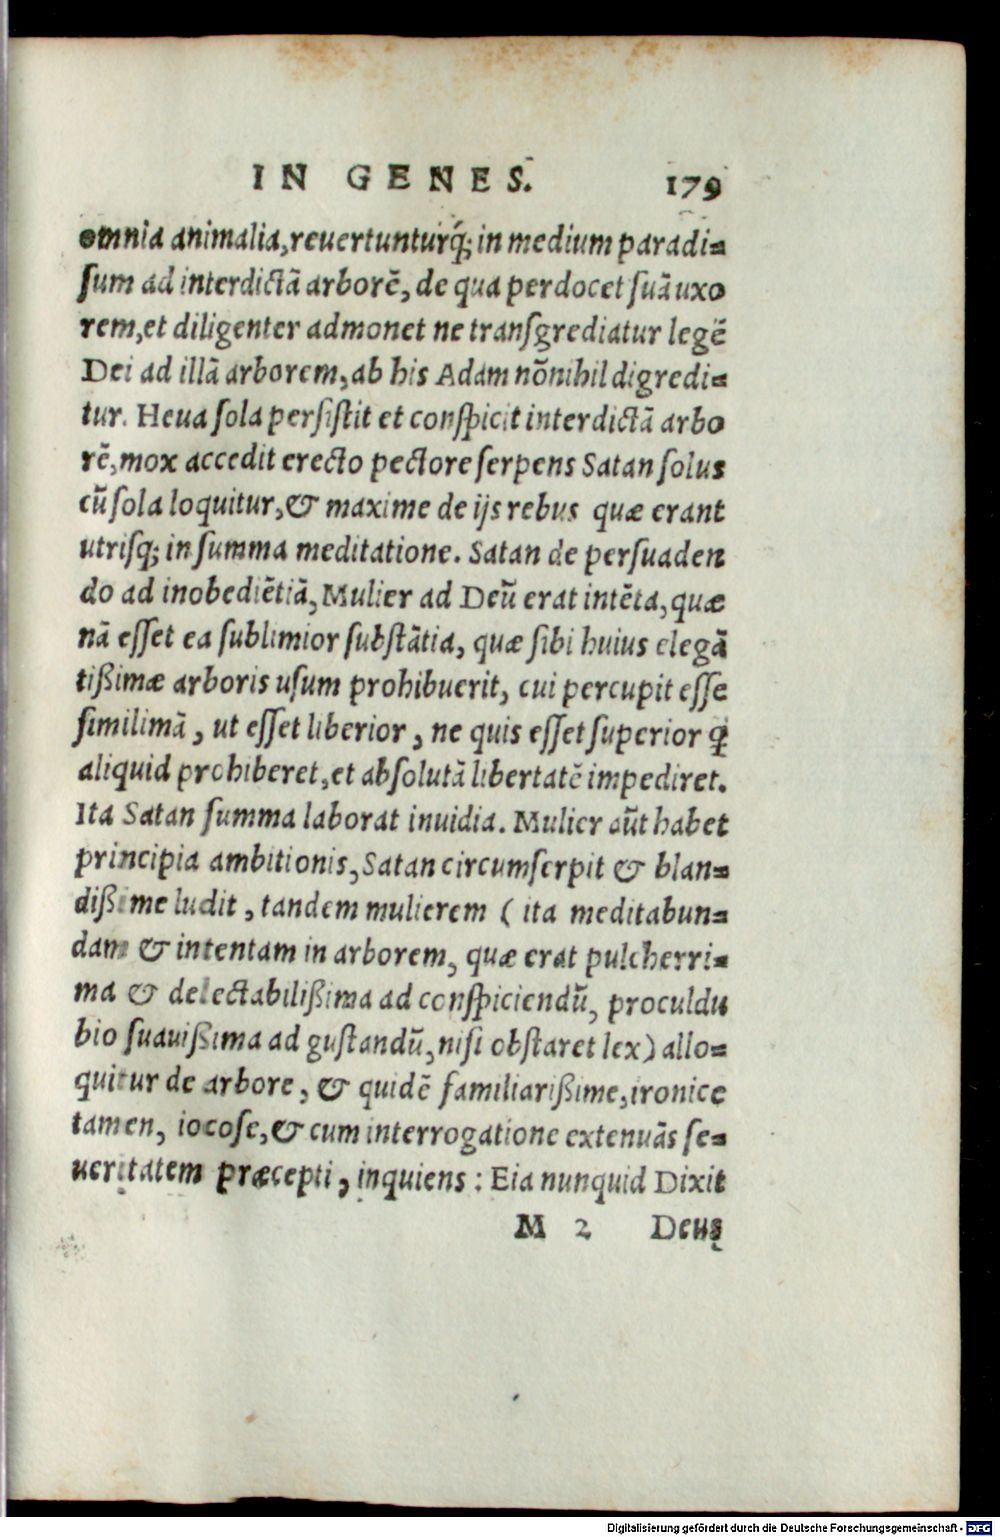 IN GENES. 179
omnia animalia, reuertunturq́; in medium paradi=
ſum ad interdictā arborē, de qua perdocet ſuā uxo
rem, et diligenter admonet ne tranſgrediatur legē
Dei ad illā arborem, ab his Adam nōnihil digredi=
tur. Heua ſola perſiſtit et conſpicit interdictā arbo
rē, mox accedit erecto pectore ſerpens Satan ſolus
cū ſola loquitur, & maxime de ijs rebus quæ erant
utriſq; in ſumma meditatione. Satan de perſuaden
do ad inobediētiā, Mulier ad Deū erat intēta, quæ
nā eſſet ea ſublimior ſubſtātia, quæ ſibi huius elegā
tißimæ arboris uſum prohibuerit, cui percupit eſſe
ſimilimā, ut eſſet liberior, ne quis eſſet ſuperior ꝗ
aliquid prohiberet, et abſolutā libertatē impediret.
Ita Satan ſumma laborat inuidia. Mulier aūt habet
principia ambitionis, Satan circumſerpit & blan=
dißime ludit, tandem mulierem ( ita meditabun=
dam & intentam in arborem, quæ erat pulcherri=
ma & delectabilißima ad conſpiciendū, proculdu
bio ſuauißima ad guſtandū, niſi obſtaret lex) allo=
quitur de arbore, & quidē familiarißime, ironice
tamen, iocoſe, & cum interrogatione extenuās ſe=
ueritatem præcepti, inquiens: Eia nunquid Dixit
M 2 Deus
Digitalisierung gefördert durch die Deutsche Forschungsgemeinschaft - DFG